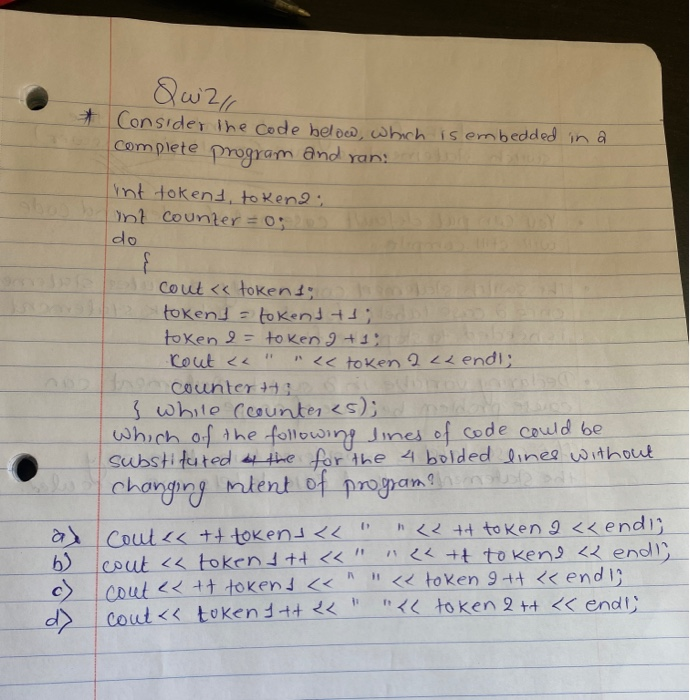 Quiz
* Consider the code below, which is embedded in a
complete program and ran:
int token1, token2;
int counter = 0;
do
{
cout << token1;
token1 = token1 + 1;
token 2 = token 2 + 1;
cout << " " << token 2 << endl;
counter ++;
} while (counter < 5);
which of the following lines of code could be
substituted for the 4 bolded lines without
changing intent of program?
a) cout << ++ token1 << " " << ++ token 2 << endl;
b) cout << token1 ++ << " " << ++ token2 << endl;
c) cout << ++ token1 << " " << token 2 ++ << endl;
d) cout << token1 ++ << " " << token 2 ++ << endl;